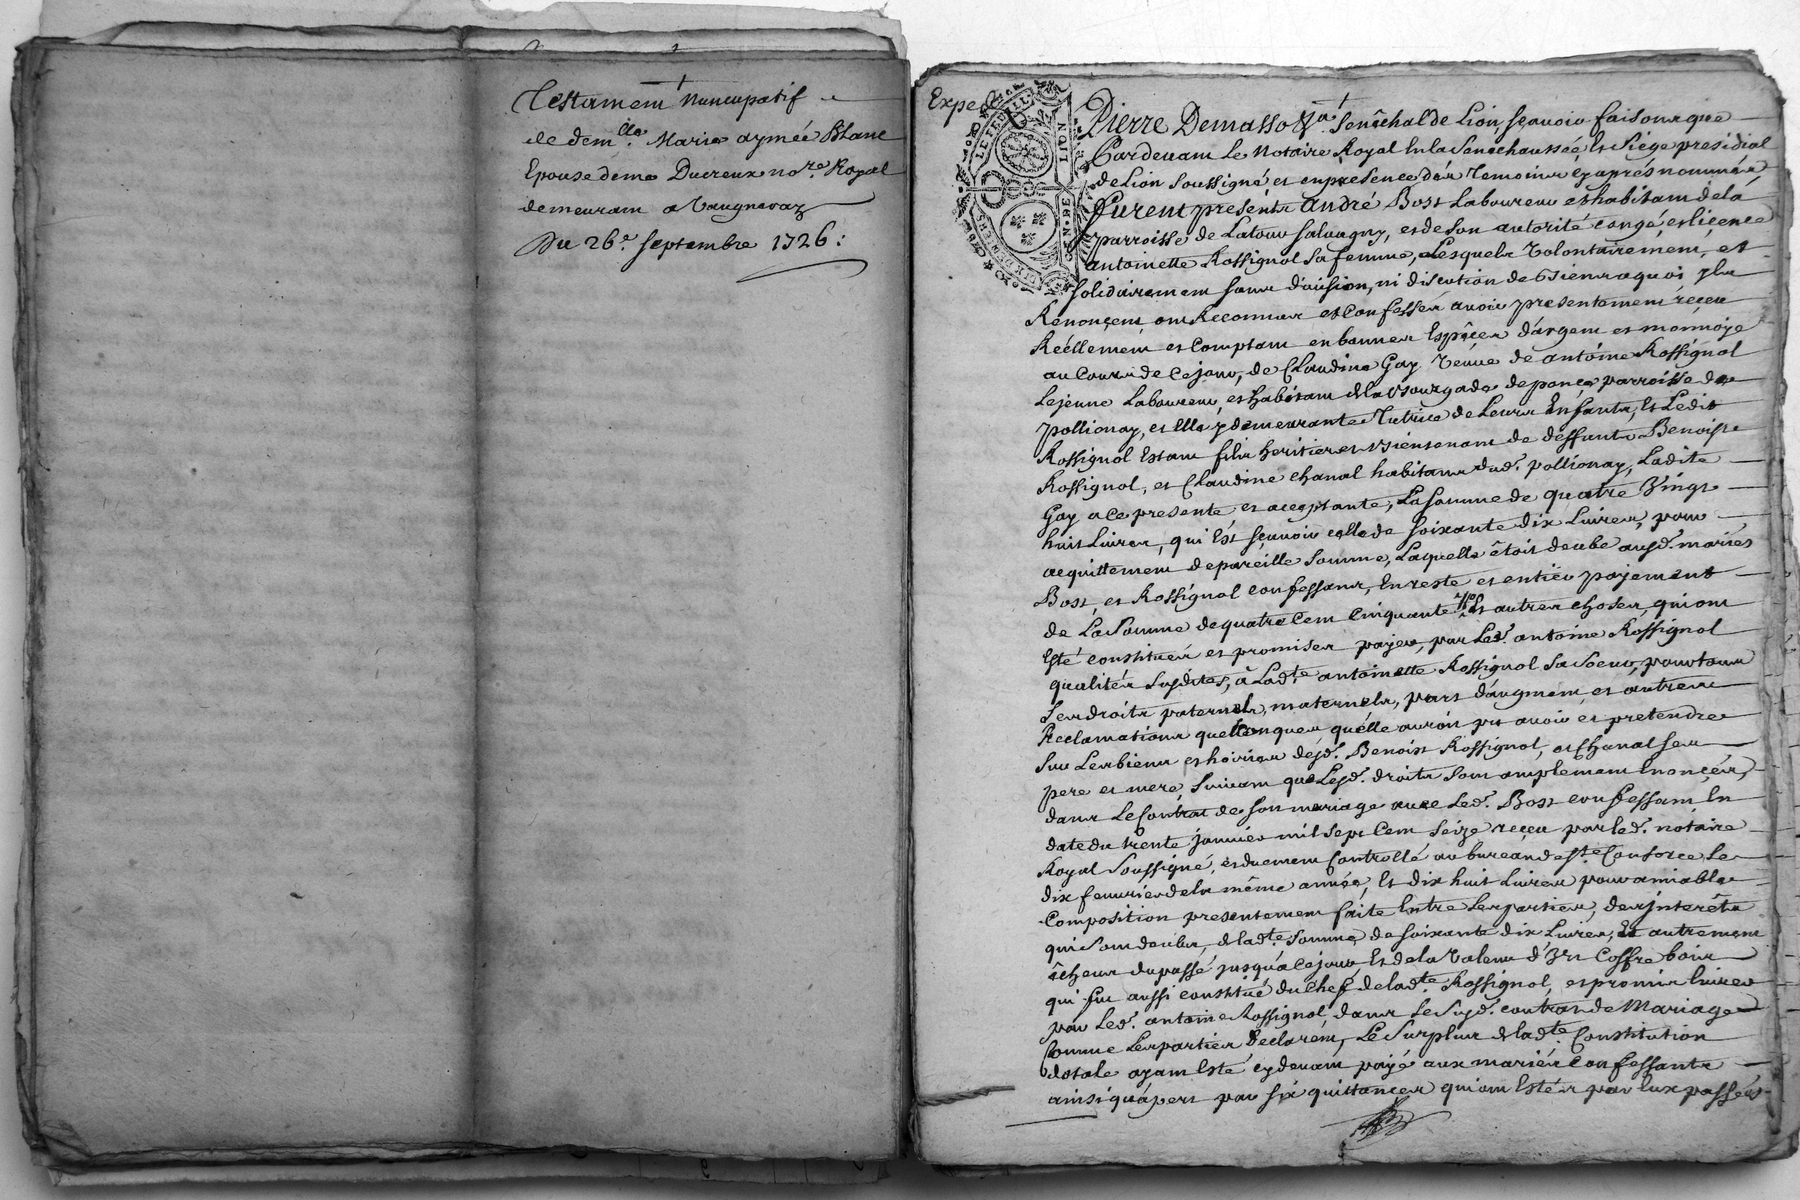 Testament Nuncupatif
de dem.lle Marie aymée Blanc
Epouse de me Ducreux no.re Royal
demeurant a Vaugneray
Du 26.e septembre 1726:
Exped
LE FEUILL.
GEN. DE LION
Pierre Demasso Senêchal de Lion, sçavoir faisons que
Pardevant Le Notaire Royal En la Senechaussée, Et Siége presidial
de Lion soussigné, et en presence des Temoins cy aprés nommés,
Furent presents André Bost Laboureur et habitant de la
parroisse de Latour salvagny, et de son autorité congé, et licence
antoinette Rossignol sa femme, Lesquels Volontairement, et
solidairement sans division, ni discution de biens a quoi ils
Renonçent, ont Reconnus et Confessés avoir presentement reçeu
Réellement et Comptant en bonnes Espêces d'argent et monnoye
au Cours de Ce jour, de Claudine Gay Veuve de antoine Rossignol
Lejeune Laboureur, et habitant de la Bourgade de ponce, parroisse de
pollionay, et Elle y demeurante Tutrice de Leurs Enfants, Et Ledit
Rossignol Estant fils heritier et bientenant de deffunts Benoist
Rossignol, et Claudine chanal habitans dud. pollionay, Ladite
Gay a ce presente et acceptante, La somme de quatre Vingt
huit Livres, qui Est sçavoir celle de soixante dix Livres, pour
acquittement de pareille somme, Laquelle êtoit deube ausd. mariés
Bost, et Rossignol confessans, En reste et entier payement
de La Somme de quatre Cent Cinquante Et autres choses, qui ont
Esté constituées et promises payer, par Led. antoine Rossignol
qualités susdites, à Lad.te antoinette Rossignol sa soeur, pour tous
ses droits paternels, maternels, parts d'augment et autres
Reclamations quelconques qu'elle auroit pû avoir et pretendre
sur Les biens et hoiries desd. Benoist Rossignol, et Chanal ses
pere et mere, suivant que Lesd. droits sont amplement Enonçés,
dans Le Contrat de son mariage avec Led. Bost confessant En
date du trente janvier mil sept Cent seize reçeu par led. notaire
Royal Soussigné, et duement Controllé au bureau de st. Conforce Le
dix fevrier de la même année, Et dix huit Livres pour amiable
Composition presentement faite Entre Les parties, des jnterêts
qui sont deubs, de lad.te somme de soixante dix Livres, Et autrement
êcheus du passé jusqu'a ce jour Et de la Valeur d'Un Coffre bois
qui fut aussi constitué du Chef de lad.te Rossignol, et promis livrer
par Led. antoine Rossignol dans Le Susd. contrat de Mariage
Comme Les parties declarent, Le Surplus de lad.te Constitution
dotale ayant Esté cy devant payé aux mariés confessants
ainsi qu'apert par six quittances qui ont Estés par Eux passées